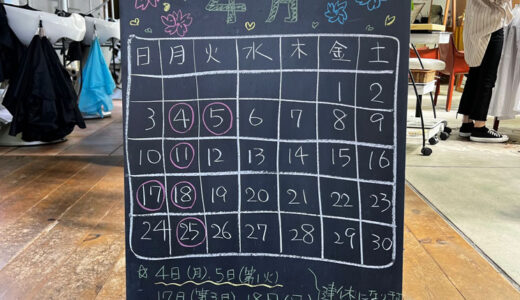 月
日 月 火 水 木 金 土
1 2
3 4 5 6 7 8 9
10 11 12 13 14 15 16
17 18 19 20 21 22 23
24 25 26 27 28 29 30
4日(月)、5日(第1火)
17日(第3日) 18日 連休になります